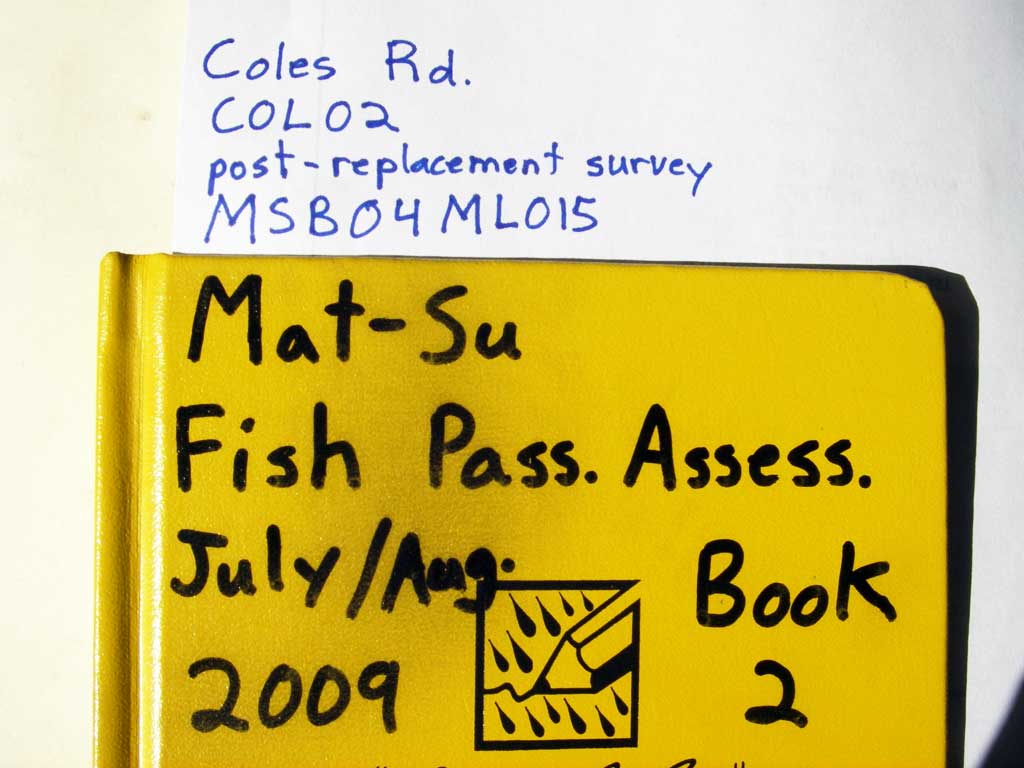 Coles Rd.
COL02
post-replacement survey
MSB04ML015
Mat-Su
Fish Pass. Assess.
July/Aug. Book
2009 2